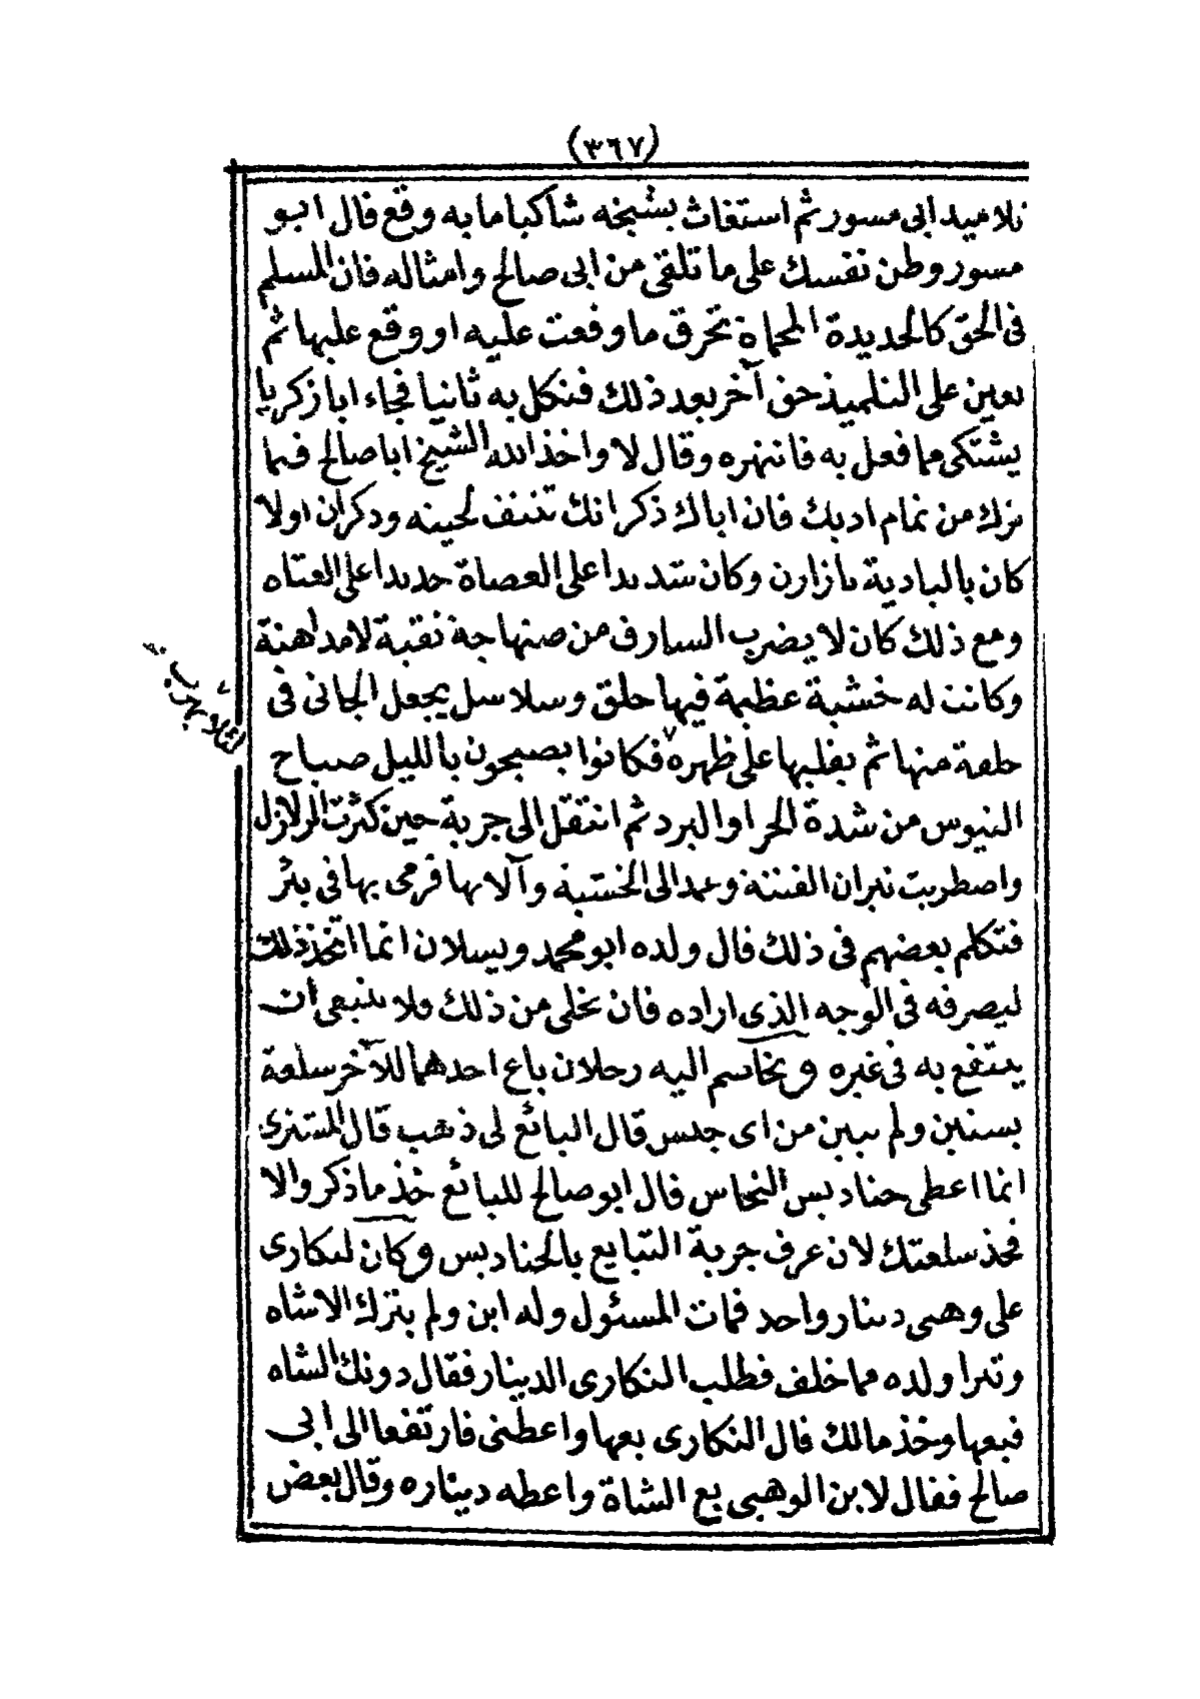 (٣٦٧)
تلاميد ابى مسور ثم استغاث بشيخه شاكيا ما به وقع قال ابو
مسور وطن نفسك على ما تلقى من ابى صالح وامثاله فان المسلم
فى الحق كالحديدة المحماة تحرق ما وقعت عليه او وقع عليها ثم
تعين على التلميذ حق آخر بعد ذلك فنكل به ثانيا فجاء ابا زكريا
يشتكى مما فعل به فانتهره وقال لا واخذ الله الشيخ ابا صالح فيما
ترك من تمام ادبك فان اباك ذكر انك تنتف لحيته وذكر ان اولا
كان بالبادية بنازارن وكان شديدا على العصاة حديدا على العتاه
ومع ذلك كان لا يضرب السارق من صنهاجة نقبة لا مداهنة
وكانت له خشبة عظيمة فيها حلق وسلاسل يجعل الجانى فى
حلقة منها ثم يقلبها على ظهره فكانوا يصيحون بالليل صياح
لئلا يهرب
التيوس من شدة الحر او البرد ثم انتقل الى جربة حين كثرت الزلازل
واضطربت نيران الفتنة وعمد الى الخشبة وآلاتها فرمى بها فى بئر
فتكلم بعضهم فى ذلك قال ولده ابو محمد ويسلان انما اتخذ ذلك
ليصرفه فى الوجه الذى اراده فان تخلى من ذلك فلا ينبغى ان
ينتفع به فى غيره وتخاصم اليه رجلان باع احدهما للآخر سلعة
بستين ولم يبين من اى جنس قال البائع لى ذهب قال المشترى
انما اعطى حناديس النحاس قال ابو صالح للبائع خذ ما ذكر والا
فخذ سلعتك لان عرف جربة التبايع بالحناديس وكان لنكارى
على وهبى دينار واحد فمات المسئول وله ابن ولم يترك الا شاه
وتبرا ولده مما خلف فطلب النكارى الدينار فقال دونك الشاه
فبعها وخذ مالك قال النكارى بعها واعطنى فارتفعا الى ابى
صالح فقال لابن الوهبى بع الشاة واعطه ديناره وقال بعض